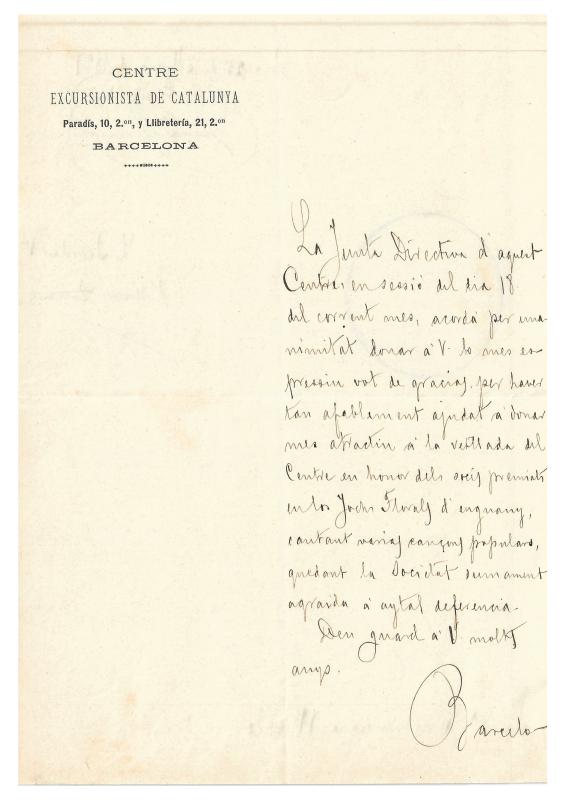 CENTRE
EXCURSIONISTA DE CATALUNYA
Paradís, 10, 2.on, y Llibretería, 21, 2.on
BARCELONA
La Junta Directiva d'aquest
Centre, en sessió del dia 18
del corrent mes, acordá per una-
nimitat donar á V. lo mes ex-
pressiu vot de gracias, per haver
tan afablement ajudat á donar
mes atractiu á la vetllada del
Centre en honor dels socis premiats
en los Jochs Florals d'enguany,
cantant varias cançons populars,
quedant la Societat sumament
agraida á aytal deferencia.
Deu guard á V. molts
anys.
Barcelo-